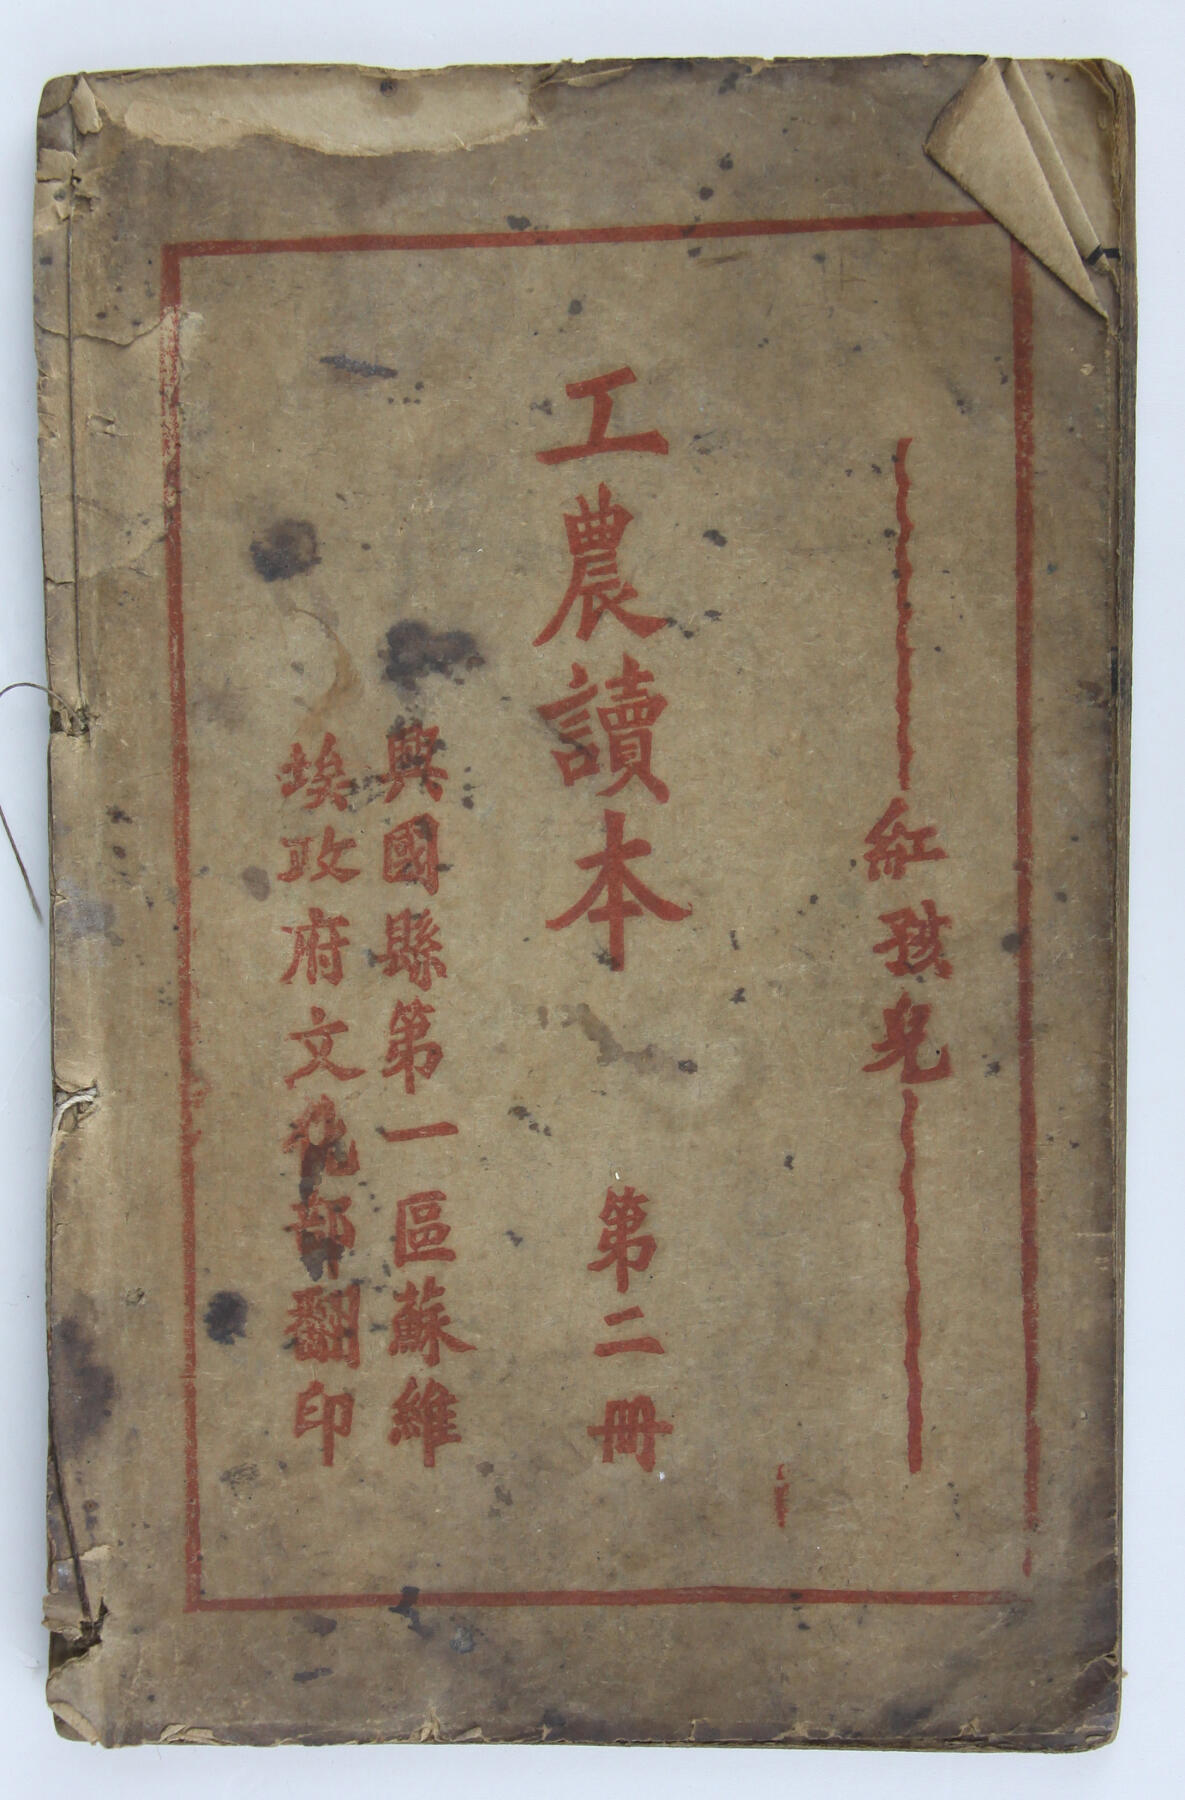 紅孩兒
工農讀本 第二冊
興國縣第一區蘇維
埃政府文化部翻印